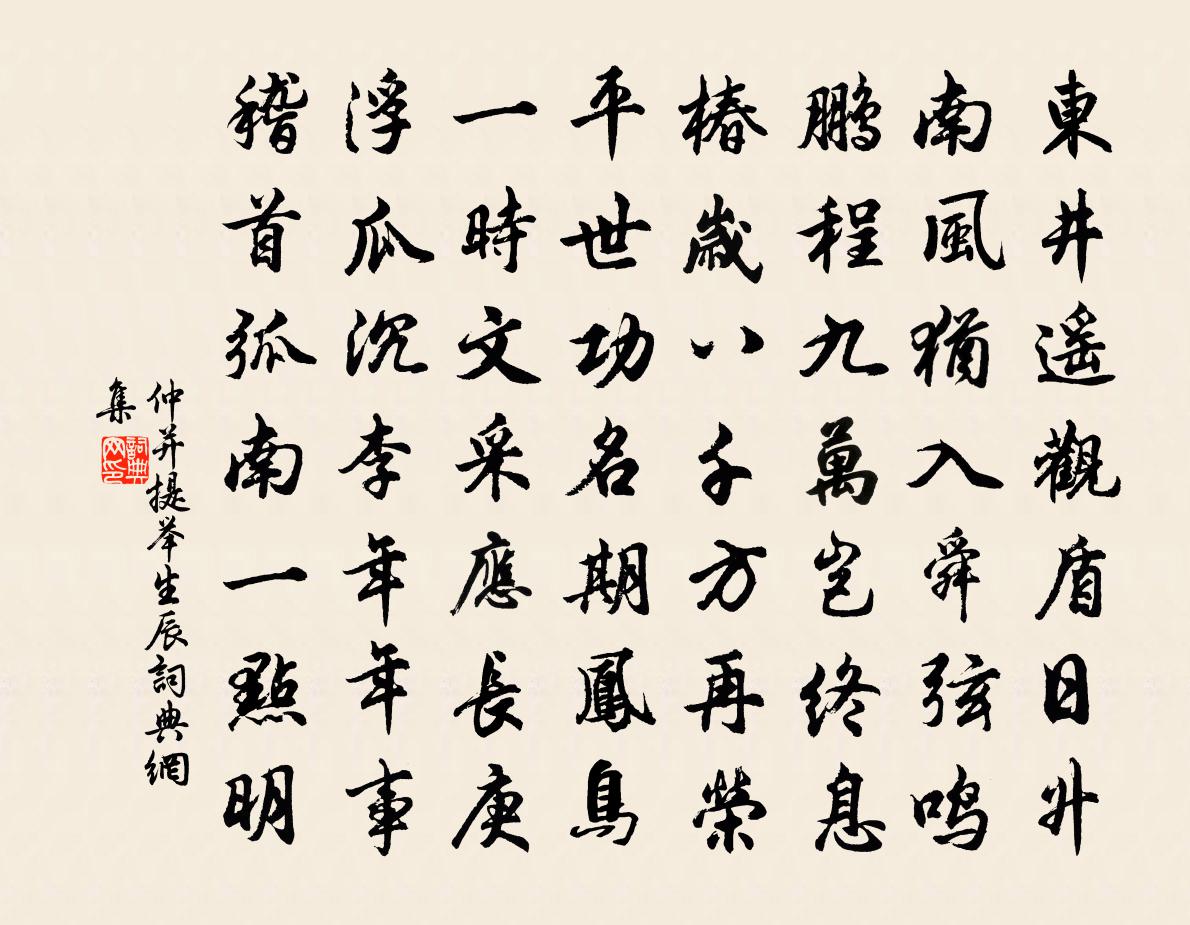 東井遥觀盾日升
南風猶入舜弦鳴
鵬程九萬岂终息
椿歲八千方再榮
平世功名期鳳鳥
一時文采應長庚
浮瓜沉李年年事
稽首狐南一點明
仲并提举生辰詞典網
集
詞典网印